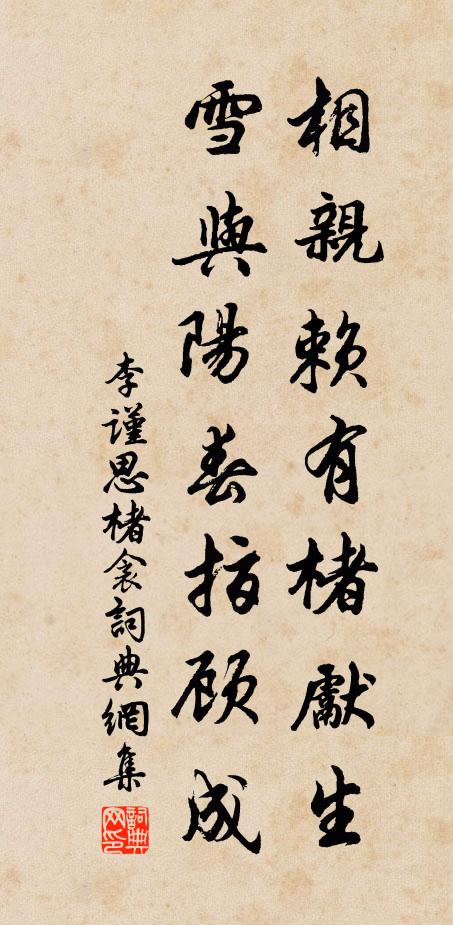 相親賴有楮獻生
雪與陽春指顧成
李謹思楮衾詞典網集
詞典網印